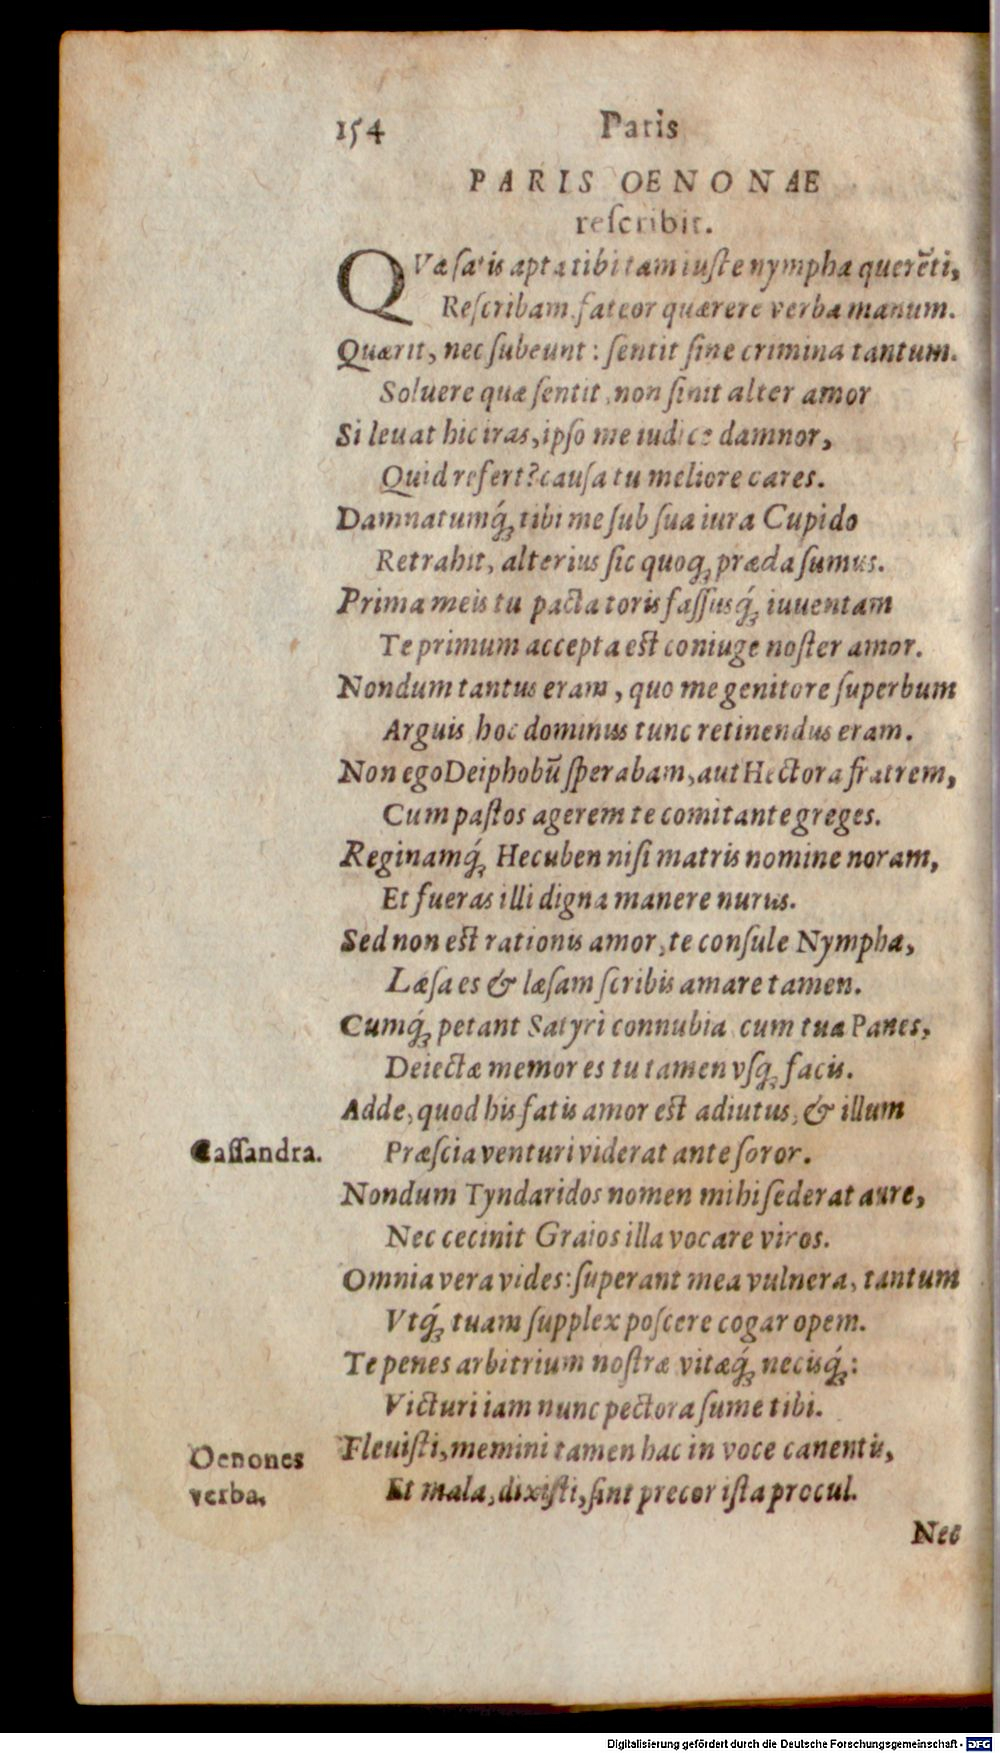 154 Paris
PARIS OENONAE
reſcribit.
QVæ ſatis apta tibi tam iuſte nympha querẽti,
Reſcribam, fateor quærere verba manum.
Quærit, nec ſubeunt: ſentit ſine crimina tantum.
Soluere quæ ſentit, non ſinit alter amor
Si leuat hic iras, ipſo me iudice damnor,
Quid refert? cauſa tu meliore cares.
Damnatumq́; tibi me ſub ſua iura Cupido
Retrahit, alterius ſic quoq; præda ſumus.
Prima meis tu pacta toris faſſusq́; iuuentam
Te primum accepta est coniuge noſter amor.
Nondum tantus eram, quo me genitore ſuperbum
Arguis hoc dominus tunc retinendus eram.
Non ego Deiphobũ ſperabam, aut Hectora fratrem,
Cum paſtos agerem te comitante greges.
Reginamq́; Hecuben niſi matris nomine noram,
Et fueras illi digna manere nurus.
Sed non est rationis amor, te conſule Nympha,
Læſa es & læſam ſcribis amare tamen.
Cumq́; petant Satyri connubia cum tua Panes,
Deiectæ memor es tu tamen vſq; facis.
Adde, quod his fatis amor est adiutus, & illum
Caſſandra. Præſcia venturi viderat ante ſoror.
Nondum Tyndaridos nomen mihi ſederat aure,
Nec cecinit Graios illa vocare viros.
Omnia vera vides: ſuperant mea vulnera, tantum
Vtq́; tuam ſupplex poſcere cogar opem.
Te penes arbitrium noſtræ vitæq́; necisq́;:
Victuri iam nunc pectora ſume tibi.
Oenones Fleuiſti, memini tamen hac in voce canentis,
verba, Et mala, dixiſti, ſint precor iſta procul.
Nec
Digitalisierung gefördert durch die Deutsche Forschungsgemeinschaft - DFG